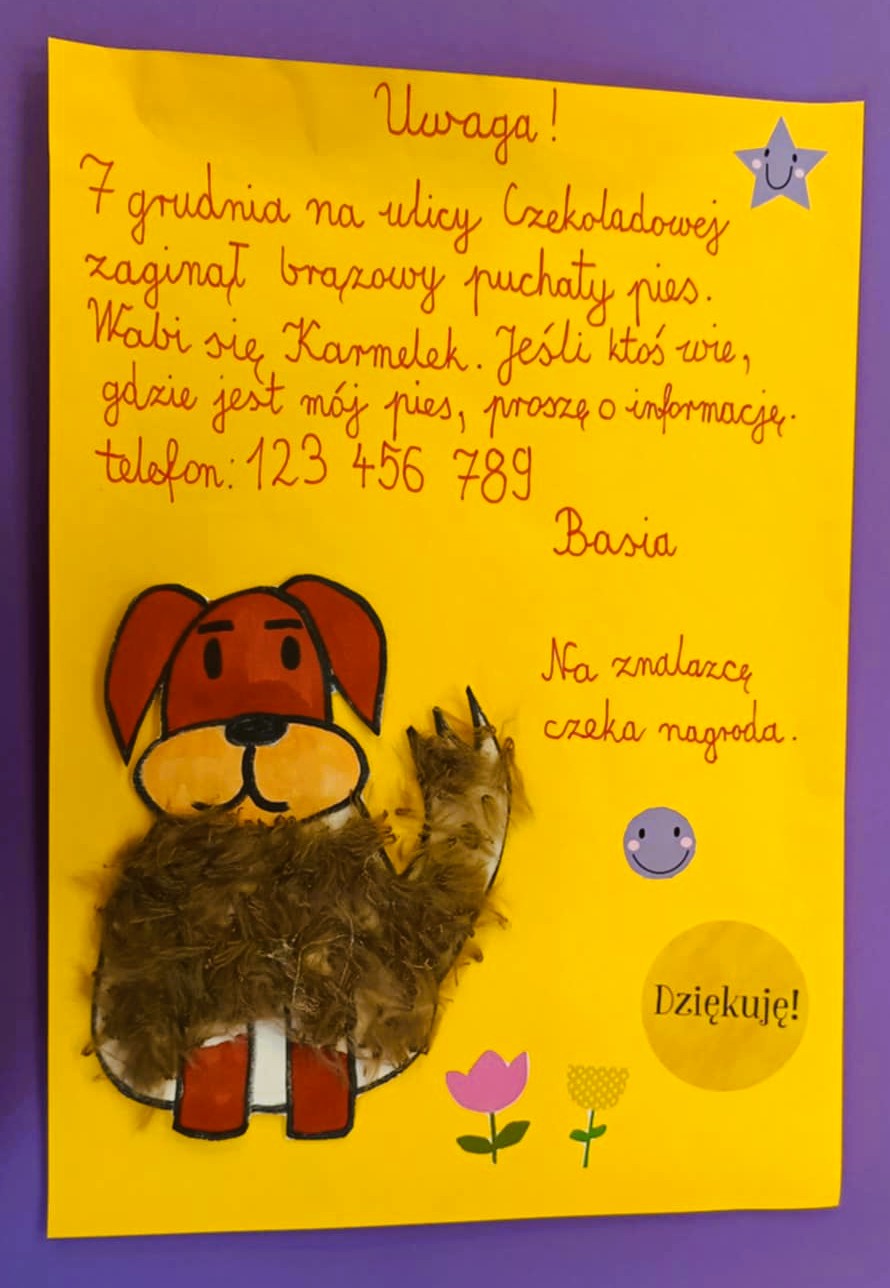 Uwaga!
7 grudnia na ulicy Czekoladowej
zaginął brązowy puchaty pies.
Wabi się Karmelek. Jeśli ktoś wie,
gdzie jest mój pies, proszę o informację.
telefon: 123 456 789
Basia
Na znalazcę
czeka nagroda.
Dziękuję!